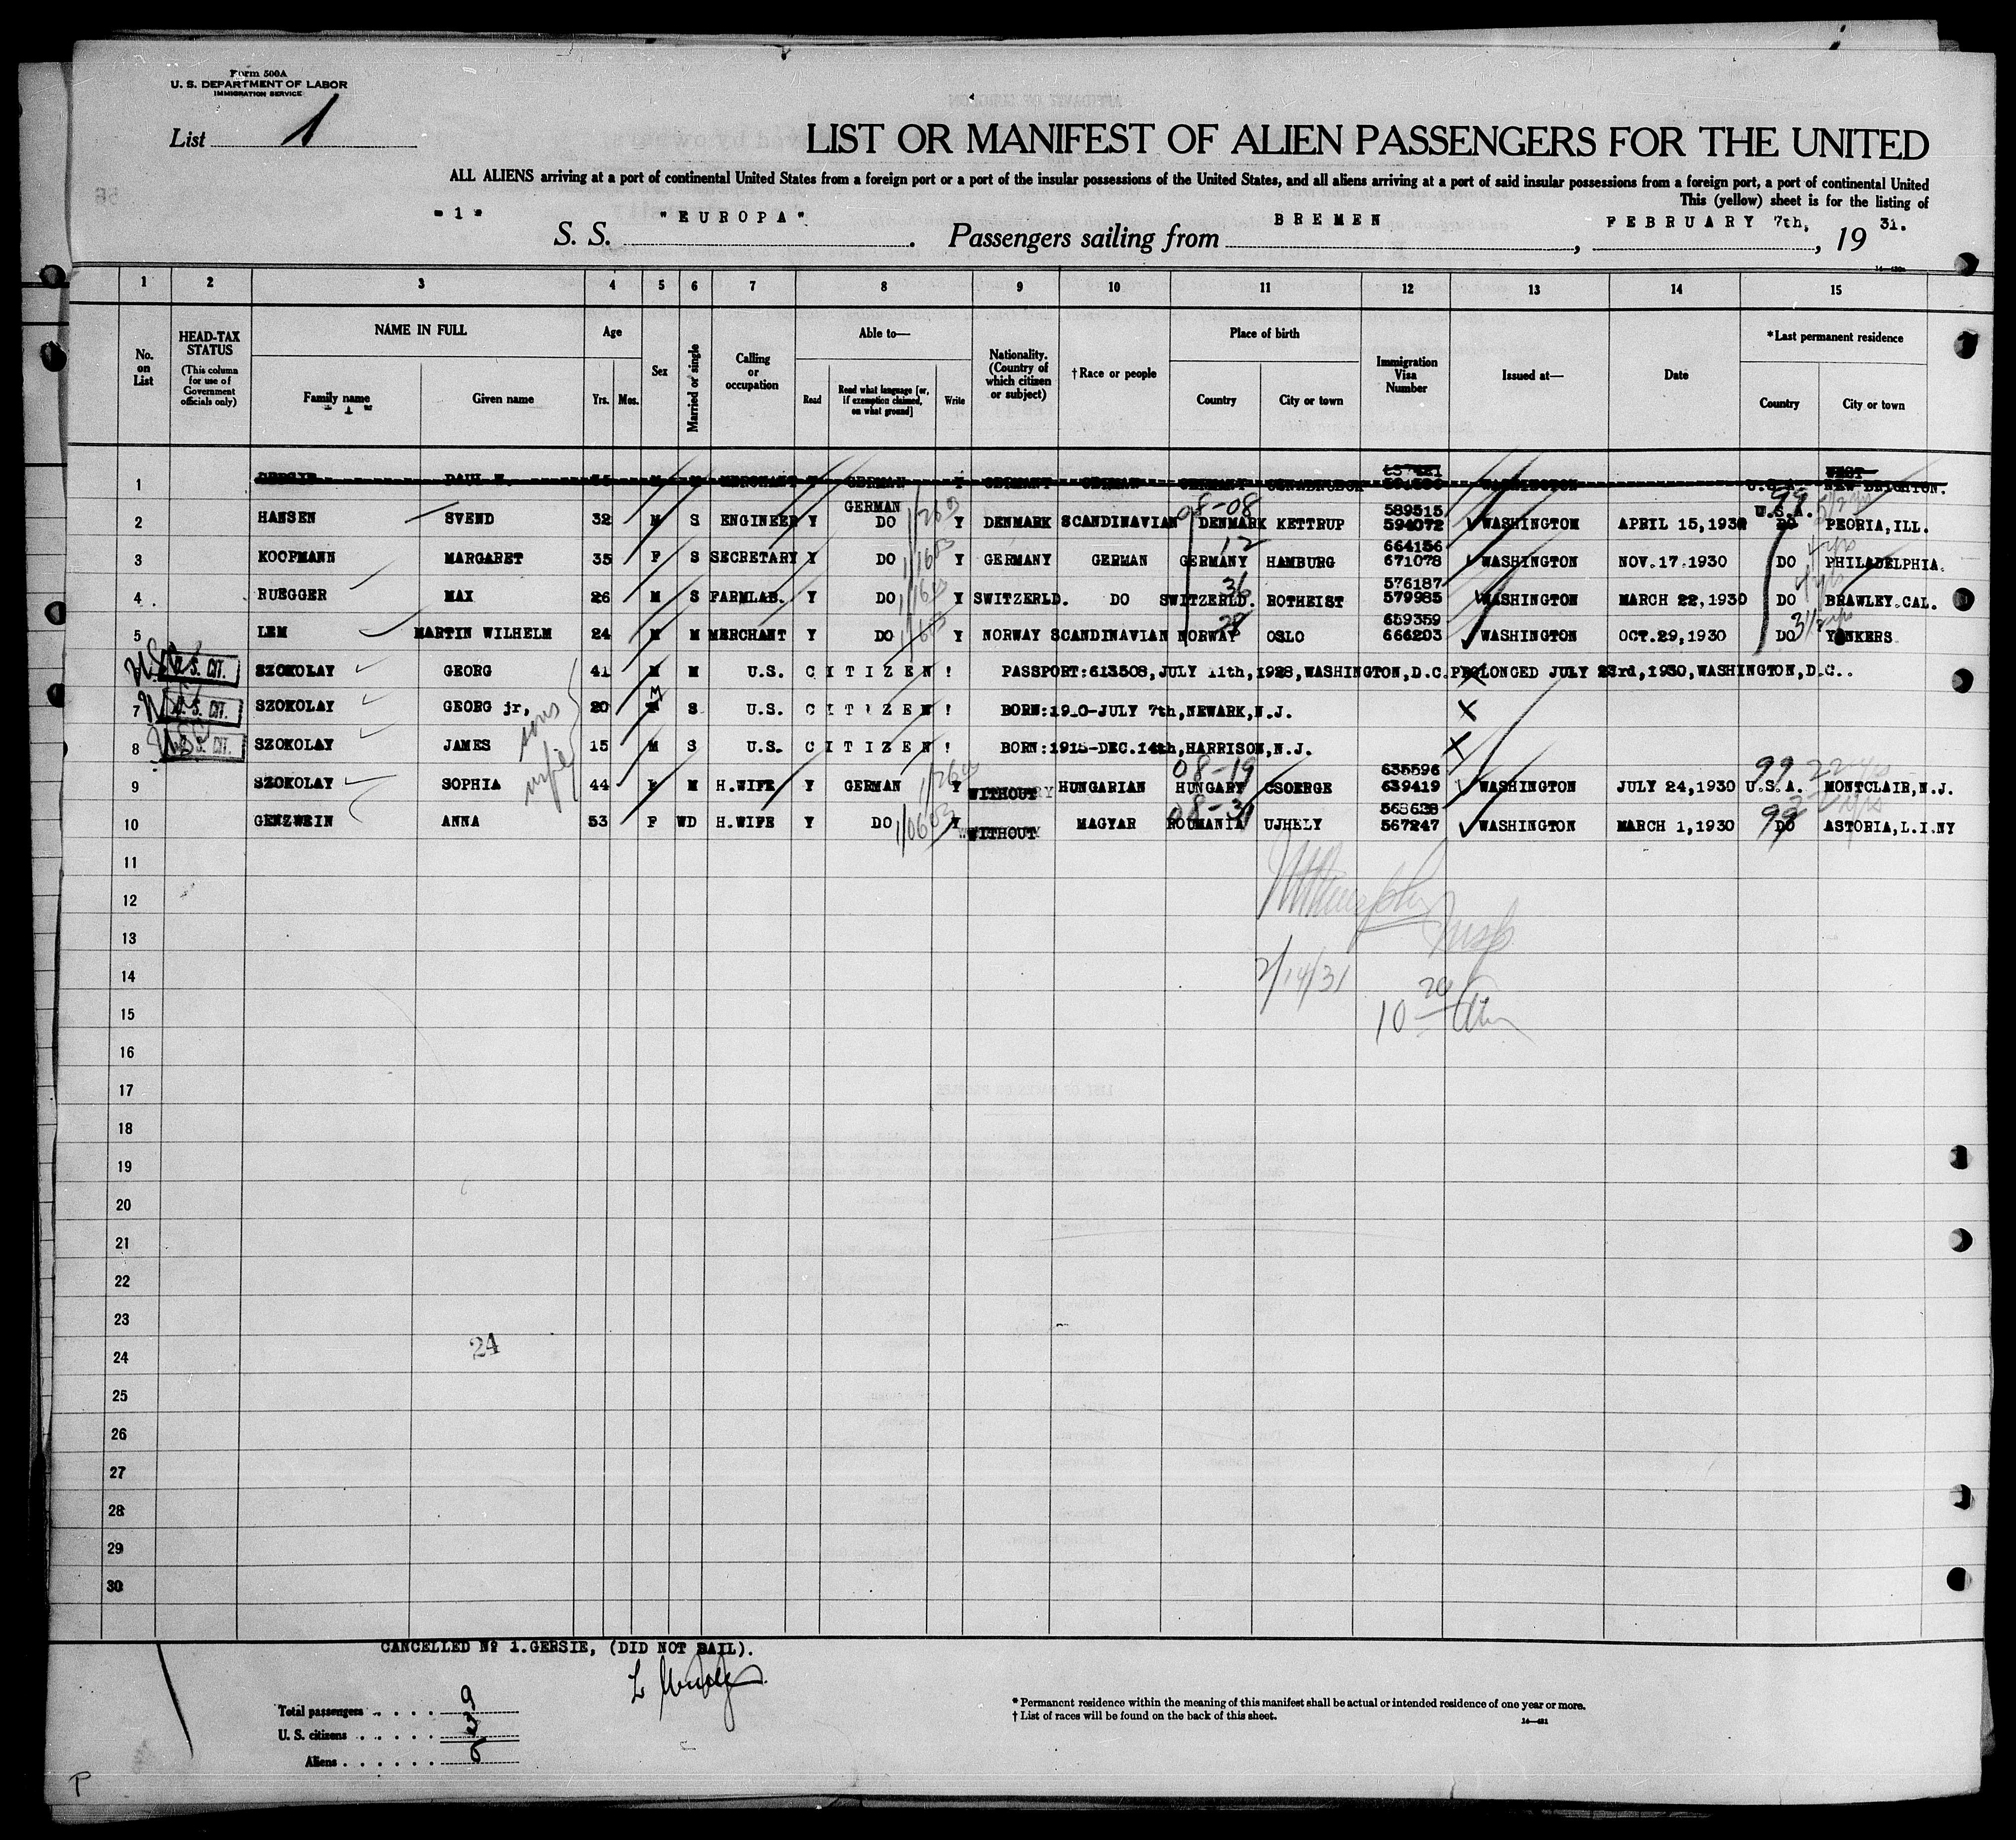 Form 500A
U. S. DEPARTMENT OF LABOR
IMMIGRATION SERVICE
List 1
LIST OR MANIFEST OF ALIEN PASSENGERS FOR THE UNITED
ALL ALIENS arriving at a port of continental United States from a foreign port or a port of the insular possessions of the United States, and all aliens arriving at a port of said insular possessions from a foreign port, a port of continental United
This (yellow) sheet is for the listing of
" 1 " S. S. "EUROPA". Passengers sailing from BREMEN, FEBRUARY 7th, 19 31.
1 2 3 4 5 6 7 8 9 10 11 12 13 14 15
No. on List
HEAD-TAX STATUS
(This column for use of Government officials only)
NAME IN FULL
Family name
Given name
Age
Yrs. Mos.
Sex
Married or single
Calling or occupation
Able to—
Read
Read what language [or, if exemption claimed, on what ground]
Write
Nationality. (Country of which citizen or subject)
† Race or people
Place of birth
Country
City or town
Immigration Visa Number
Issued at—
Date
*Last permanent residence
Country
City or town
1 PAUL W. M MERCHANT GERMAN GERMANY GERMAN GERMANY WASHINGTON U.S.A. WEST NEW BRIGHTON.
2 HANSEN SVEND 32 M S ENGINEER Y GERMAN DO Y DENMARK SCANDINAVIAN DENMARK KETTRUP 589515 594072 WASHINGTON APRIL 15,1930 U.S.A. DO PEORIA,ILL.
08-08 99
3 KOOPMANN MARGARET 35 F S SECRETARY Y DO Y GERMANY GERMAN GERMANY HAMBURG 664156 671078 WASHINGTON NOV.17.1930 DO PHILADELPHIA.
12
4 RUEGGER MAX 26 M S FARMLAB. Y DO Y SWITZERLD. DO SWITZERLD. ROTHEIST 576187 579985 WASHINGTON MARCH 22,1930 DO BRAWLEY.CAL.
36
5 LEM MARTIN WILHELM 24 M M MERCHANT Y DO Y NORWAY SCANDINAVIAN NORWAY OSLO 659359 666203 WASHINGTON OCT.29,1930 DO YONKERS
6 U.S. CIT. SZOKOLAY GEORG 41 M M U.S. CITIZEN! PASSPORT:613508,JULY 11th,1928,WASHINGTON,D.C.PROLONGED JULY 23rd,1930,WASHINGTON,D.C..
7 U.S. CIT. SZOKOLAY GEORG jr, 20 M S U.S. CITIZEN! BORN:1910-JULY 7th,NEWARK,N.J.
sons
8 U.S. CIT. SZOKOLAY JAMES 15 M S U.S. CITIZEN! BORN:1915-DEC.14th,HARRISON,N.J.
wife
9 SZOKOLAY SOPHIA 44 F M H.WIFE Y GERMAN Y WITHOUT HUNGARIAN HUNGARY CSOERGE 635596 639419 WASHINGTON JULY 24,1930 U.S.A. MONTCLAIR,N.J.
08-19 99
10 GENZWEIN ANNA 53 F WD H.WIFE Y DO Y WITHOUT MAGYAR ROUMANIA UJHELY 567247 WASHINGTON MARCH 1,1930 DO ASTORIA,L.I.NY
08-31 99
11
12
13
14 2/14/31
15 10 20
16
17
18
19
20
21
22
23
24
24
25
26
27
28
29
30
CANCELLED No 1.GERSIE, (DID NOT SAIL).
Total passengers 9
U. S. citizens 3
Aliens 6
* Permanent residence within the meaning of this manifest shall be actual or intended residence of one year or more.
† List of races will be found on the back of this sheet.
P